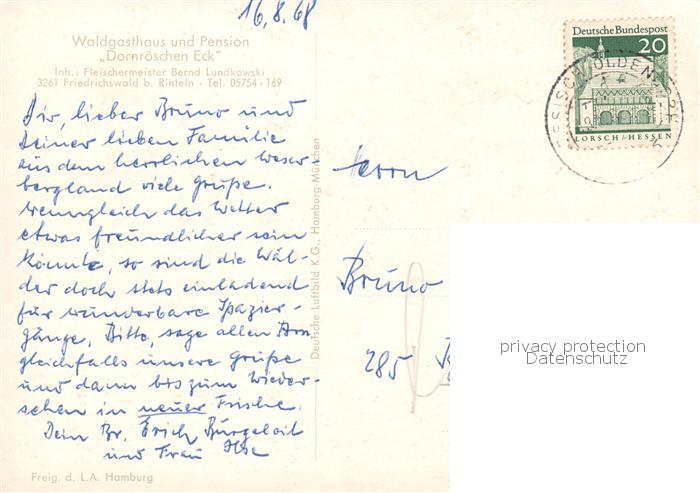 16.8.68
Waldgasthaus und Pension
„Dornröschen Eck"
Inh.: Fleischermeister Bernd Lundkowski
3261 Friedrichswald b. Rinteln - Tel. 05754-169
Dir, lieber Bruno und
Deiner lieben Familie
aus dem herrlichen Weser-
bergland viele Grüße.
Wenngleich das Wetter
etwas freundlicher sein
könnte, so sind die Wäl-
der doch stets einladend
für wunderbare Spazier-
gänge. Bitte, sage allen
gleichfalls unsere Grüße
und dann bis zum Wieder-
sehen in neuer Frische.
Dein Br. Erich Burgeleit
und Frau Ilse
Freig. d. L.A. Hamburg
Deutsche Luftbild K.G., Hamburg-München
Deutsche Bundespost
20
LORSCH/HESSEN
HESSISCH OLDENDORF
Herrn
Bruno
285
privacy protection
Datenschutz